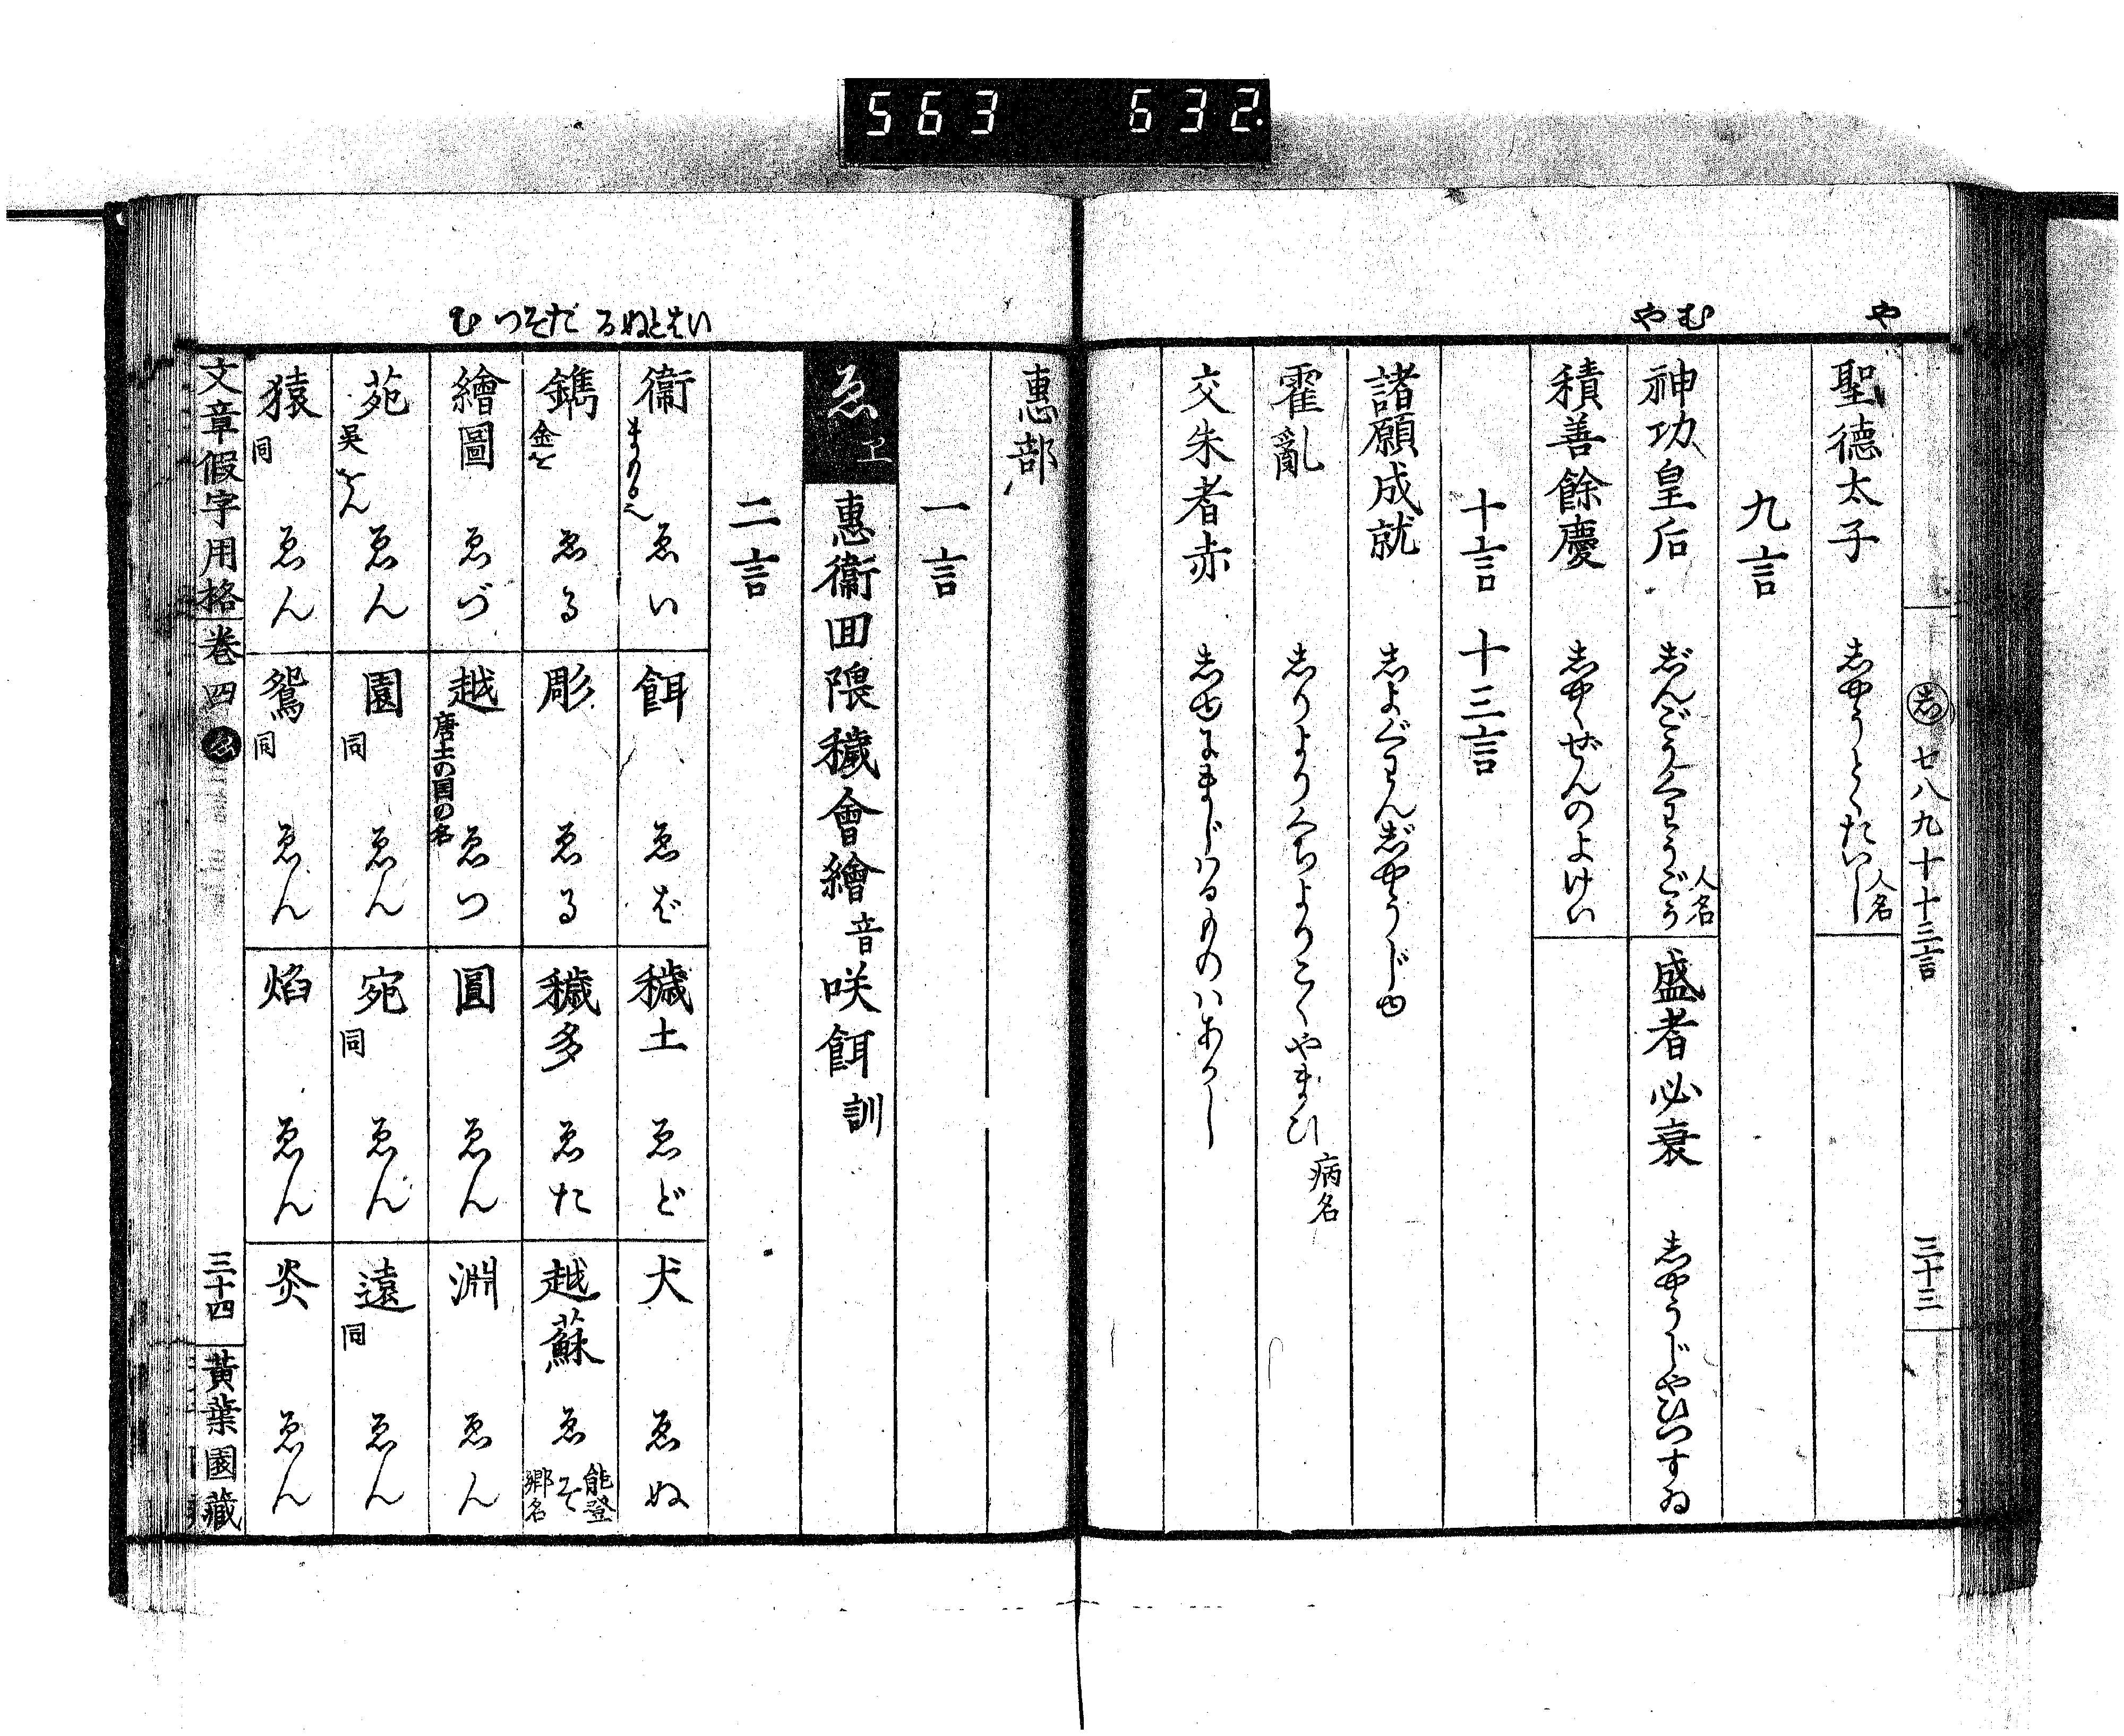 563 632
や
やむ
㋛七八九十十三言 三十三
聖德太子 志やうとくたいし 人名
九言
神功皇后 志゛んごうくわうごう 人名
盛者必衰 志やうじやひつすゐ
積善餘慶 志やくぜんのよけい
十言 十三言
諸願成就 志よぐわん志゛やうじゆ
霍亂 志りよりくちよりこくやまひ 病名
交朱者赤 志ゆにまじはるものはあかし
惠部
一言
ゑ エ 惠衞囬隈穢會繪 音 咲餌 訓
二言
いはとぬるだそつむ
衞 まもる也 ゑい
餌 ゑば
穢土 ゑど
犬 ゑぬ
鐫 金を ゑる
彫 ゑる
穢多 ゑた
越蘇 ゑそ 能登郷名
繪圖 ゑづ
越 唐土の国の名 ゑつ
圓 ゑん
淵 ゑん
苑 呉をん ゑん
園 同 ゑん
宛 同 ゑん
遠 同 ゑん
猿 同 ゑん
鴛 同 ゑん
焰 ゑん
炎 ゑん
文章假字用格 卷四 ゑ 三十四 黃葉園藏